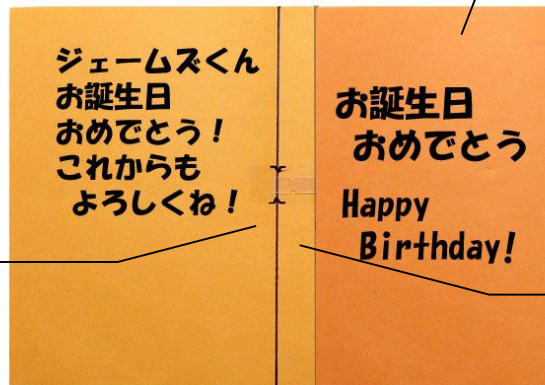 ジェームズくん
お誕生日
おめでとう！
これからも
よろしくね！
お誕生日
おめでとう
Happy
Birthday!